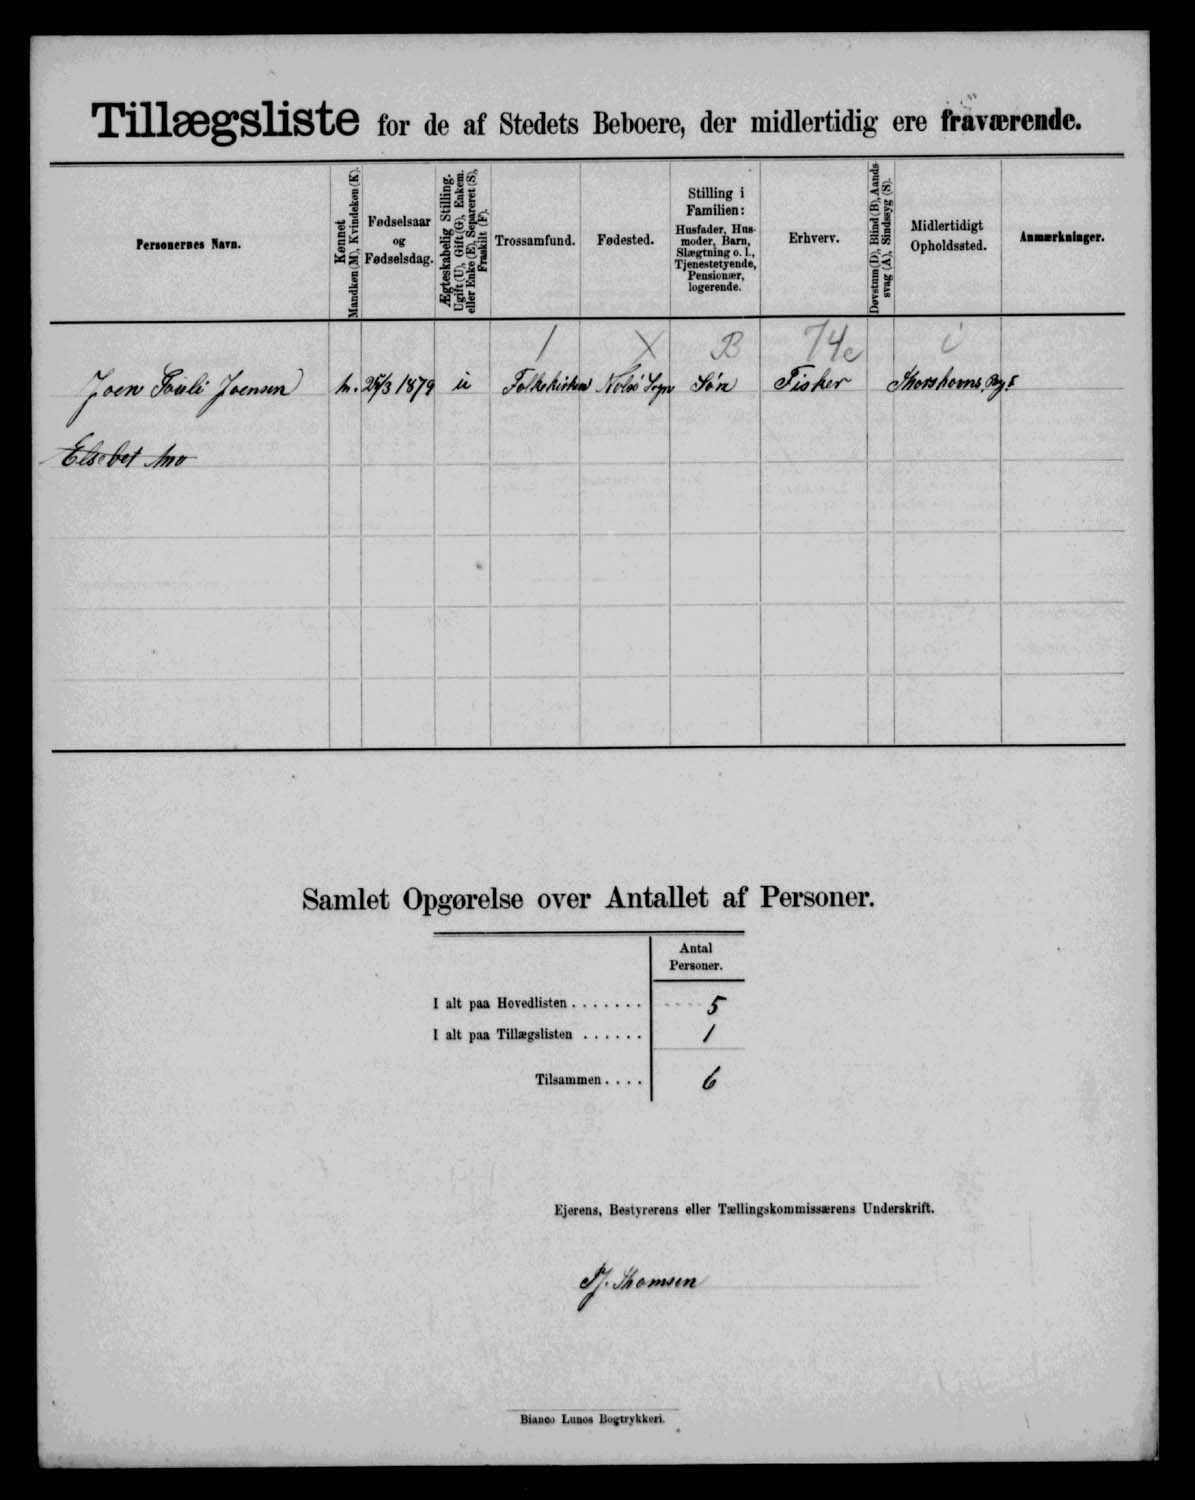 Tillægsliste for de af Stedets Beboere, der midlertidig ere fraværende.
Personernes Navn.
Kønnet
Mandkøn (M), Kvindekøn (K).
Fødselsaar
og
Fødselsdag.
Ægteskabelig Stilling.
Ugift (U), Gift (G), Enkem.
eller Enke (E), Separeret (S),
Fraskilt (F).
Trossamfund.
Fødested.
Stilling i
Familien:
Husfader, Hus-
moder, Barn,
Slægtning o. l.,
Tjenestetyende,
Pensionær,
logerende.
Erhverv.
Døvstum (D), Blind (B), Aands-
svag (A), Sindssyg (S).
Midlertidigt
Opholdssted.
Anmærkninger.
1 X B 74c i
Joen Pauli Joensen m. 25/3 1879 u Folkekirken Nolsö Sogn Søn Fisker Thorshavns
Elsebet
Samlet Opgørelse over Antallet af Personer.
Antal
Personer.
I alt paa Hovedlisten . . . . . . . 5
I alt paa Tillægslisten . . . . . . 1
Tilsammen . . . . 6
Ejerens, Bestyrerens eller Tællingskommissærens Underskrift.
Thomsen
Bianco Lunos Bogtrykkeri.